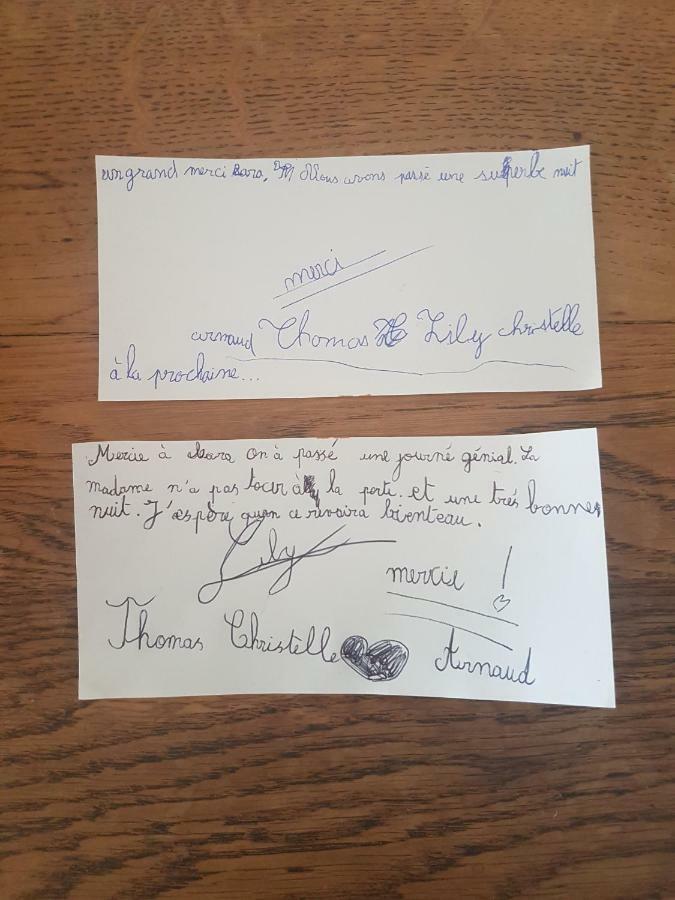 un grand merci Sara, Nous avons passé une superbe nuit
merci
arnaud Thomas Lily christelle
à la prochaine...
Mercie à Sara on à passé une journé génial. La
madame n'a pas tocir à la porte. et une trés bonnes
nuit. J'æspère quon ce revoira bienteau.
Lily
mercie !
Thomas Christelle Arnaud